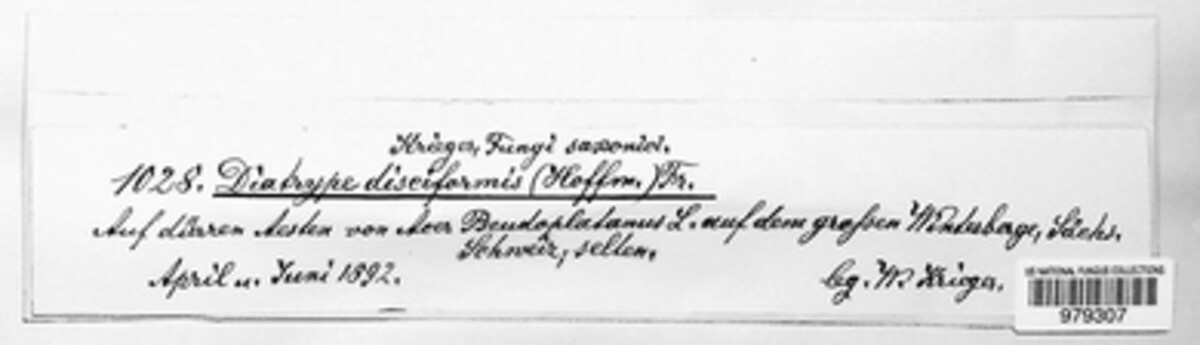 Krieger, Fungi saxonici.
1028. Diatrype disciformis (Hoffm.) Fr.
Auf dürren Aesten von Acer Pseudoplatanus L. auf dem großen Winterberge, Sächs.
Schweiz, selten.
April u. Juni 1892.
leg. W. Krieger.
US NATIONAL FUNGUS COLLECTIONS
979307